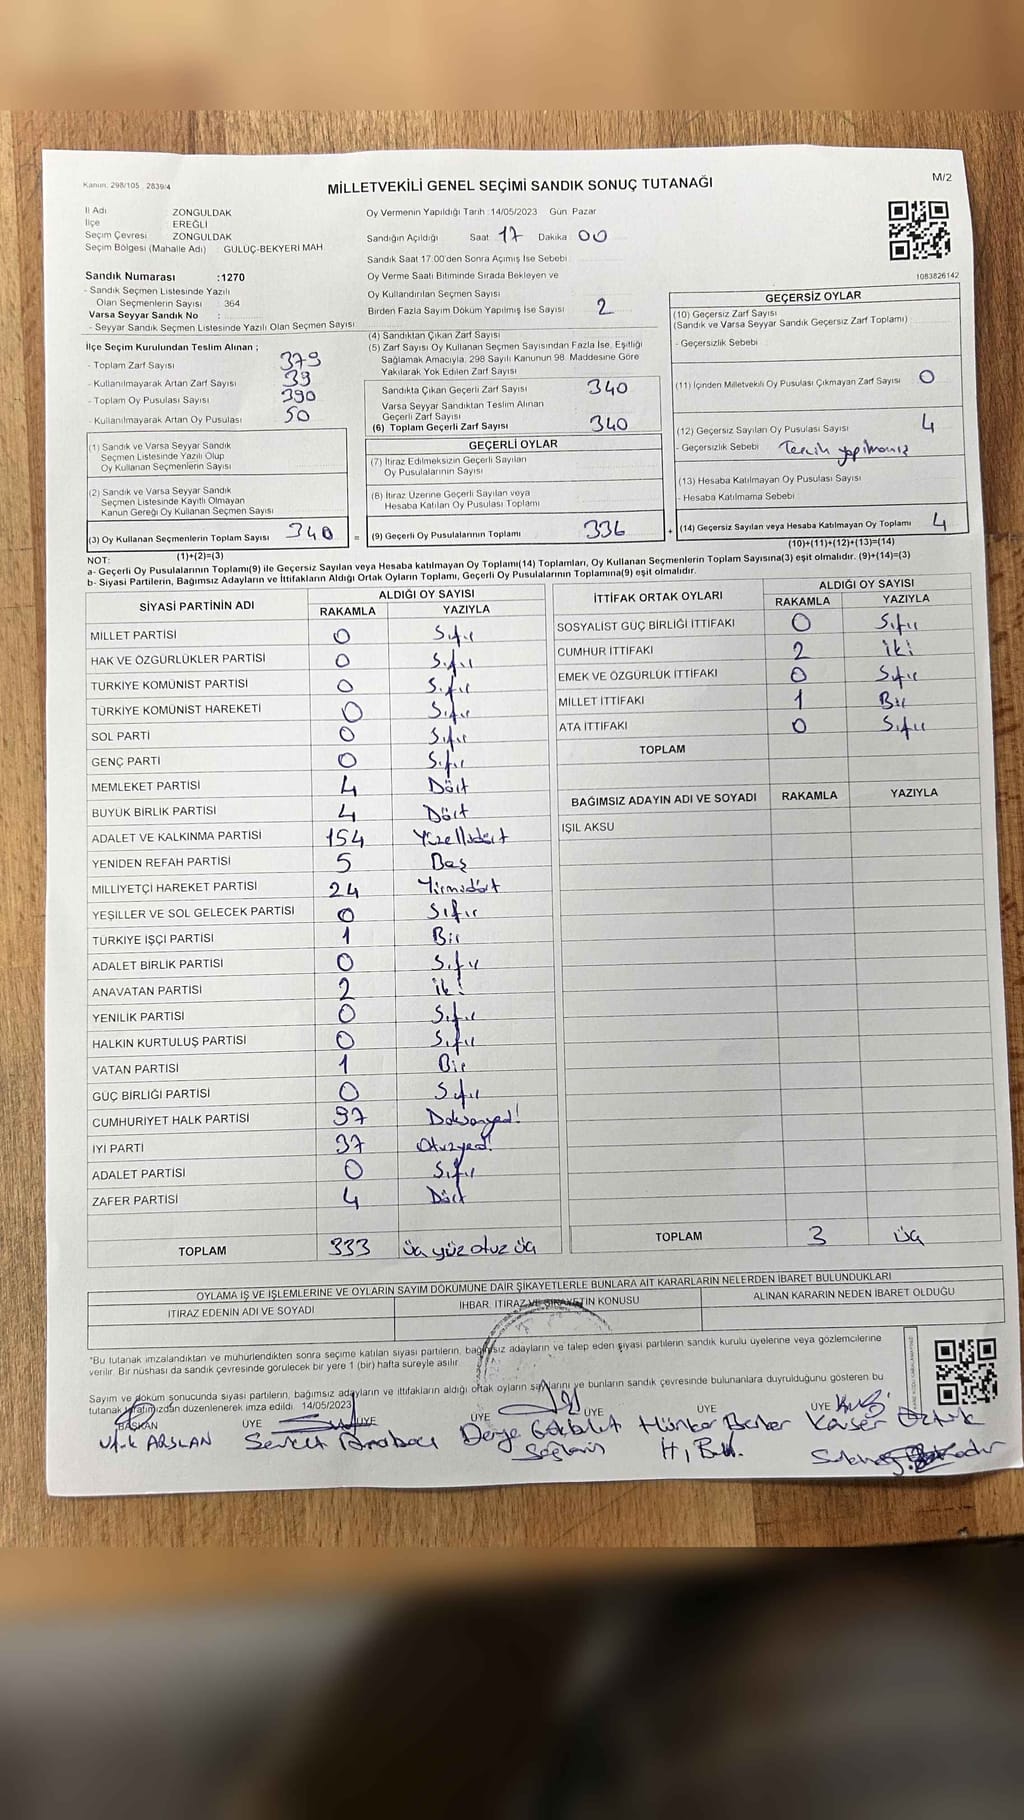 Kanun: 298/105 , 2839/4
MİLLETVEKİLİ GENEL SEÇİMİ SANDIK SONUÇ TUTANAĞI
M/2
İl Adı ZONGULDAK
İlçe EREĞLİ
Seçim Çevresi ZONGULDAK
Seçim Bölgesi (Mahalle Adı) GÜLÜÇ-BEKYERİ MAH
Sandık Numarası :1270
- Sandık Seçmen Listesinde Yazılı
Olan Seçmenlerin Sayısı : 364
Varsa Seyyar Sandık No :
- Seyyar Sandık Seçmen Listesinde Yazılı Olan Seçmen Sayısı
İlçe Seçim Kurulundan Teslim Alınan ;
- Toplam Zarf Sayısı 379
- Kullanılmayarak Artan Zarf Sayısı 39
- Toplam Oy Pusulası Sayısı 390
- Kullanılmayarak Artan Oy Pusulası 50
(1) Sandık ve Varsa Seyyar Sandık
Seçmen Listesinde Yazılı Olup
Oy Kullanan Seçmenlerin Sayısı
(2) Sandık ve Varsa Seyyar Sandık
Seçmen Listesinde Kayıtlı Olmayan
Kanun Gereği Oy Kullanan Seçmen Sayısı
(3) Oy Kullanan Seçmenlerin Toplam Sayısı 340 =
(1)+(2)=(3)
Oy Vermenin Yapıldığı Tarih :14/05/2023 Gün Pazar
Sandığın Açıldığı Saat 17 Dakika 00
Sandık Saat 17:00'den Sonra Açımış İse Sebebi
Oy Verme Saati Bitiminde Sırada Bekleyen ve
Oy Kullandırılan Seçmen Sayısı
Birden Fazla Sayım Döküm Yapılmış İse Sayısı 2
(4) Sandıktan Çıkan Zarf Sayısı
(5) Zarf Sayısı Oy Kullanan Seçmen Sayısından Fazla İse, Eşitliği
Sağlamak Amacıyla, 298 Sayılı Kanunun 98. Maddesine Göre
Yakılarak Yok Edilen Zarf Sayısı
Sandıkta Çıkan Geçerli Zarf Sayısı 340
Varsa Seyyar Sandıktan Teslim Alınan
Geçerli Zarf Sayısı
(6) Toplam Geçerli Zarf Sayısı 340
GEÇERLİ OYLAR
(7) İtiraz Edilmeksizin Geçerli Sayılan
Oy Pusulalarının Sayısı
(8) İtiraz Üzerine Geçerli Sayılan veya
Hesaba Katılan Oy Pusulası Toplamı
(9) Geçerli Oy Pusulalarının Toplamı 336 +
1083826142
GEÇERSİZ OYLAR
(10) Geçersiz Zarf Sayısı
(Sandık ve Varsa Seyyar Sandık Geçersiz Zarf Toplamı)
- Geçersizlik Sebebi
(11) İçinden Milletvekili Oy Pusulası Çıkmayan Zarf Sayısı 0
(12) Geçersiz Sayılan Oy Pusulası Sayısı 4
- Geçersizlik Sebebi Tercih yapılmamış
(13) Hesaba Katılmayan Oy Pusulası Sayısı
- Hesaba Katılmama Sebebi
(14) Geçersiz Sayılan veya Hesaba Katılmayan Oy Toplamı 4
(10)+(11)+(12)+(13)=(14)
NOT:
a- Geçerli Oy Pusulalarının Toplamı(9) ile Geçersiz Sayılan veya Hesaba Katılmayan Oy Toplamı(14) Toplamları, Oy Kullanan Seçmenlerin Toplam Sayısına(3) eşit olmalıdır. (9)+(14)=(3)
b- Siyasi Partilerin, Bağımsız Adayların ve İttifakların Aldığı Ortak Oyların Toplamı, Geçerli Oy Pusulalarının Toplamına(9) eşit olmalıdır.
SİYASİ PARTİNİN ADI ALDIĞI OY SAYISI
RAKAMLA YAZIYLA
MİLLET PARTİSİ 0 Sıfır
HAK VE ÖZGÜRLÜKLER PARTİSİ 0 Sıfır
TÜRKİYE KOMÜNİST PARTİSİ 0 Sıfır
TÜRKİYE KOMÜNİST HAREKETİ 0 Sıfır
SOL PARTİ 0 Sıfır
GENÇ PARTİ 0 Sıfır
MEMLEKET PARTİSİ 4 Dört
BÜYÜK BİRLİK PARTİSİ 4 Dört
ADALET VE KALKINMA PARTİSİ 154 Yüzellidört
YENİDEN REFAH PARTİSİ 5 Beş
MİLLİYETÇİ HAREKET PARTİSİ 24 Yirmidört
YEŞİLLER VE SOL GELECEK PARTİSİ 0 Sıfır
TÜRKİYE İŞÇİ PARTİSİ 1 Bir
ADALET BİRLİK PARTİSİ 0 Sıfır
ANAVATAN PARTİSİ 2 iki
YENİLİK PARTİSİ 0 Sıfır
HALKIN KURTULUŞ PARTİSİ 0 Sıfır
VATAN PARTİSİ 1 Bir
GÜÇ BİRLİĞİ PARTİSİ 0 Sıfır
CUMHURİYET HALK PARTİSİ 97 Doksanyedi
İYİ PARTİ 37 Otuzyedi
ADALET PARTİSİ 0 Sıfır
ZAFER PARTİSİ 4 Dört
TOPLAM 333 üç yüz otuz üç
İTTİFAK ORTAK OYLARI ALDIĞI OY SAYISI
RAKAMLA YAZIYLA
SOSYALİST GÜÇ BİRLİĞİ İTTİFAKI 0 Sıfır
CUMHUR İTTİFAKI 2 iki
EMEK VE ÖZGÜRLÜK İTTİFAKI 0 Sıfır
MİLLET İTTİFAKI 1 Bir
ATA İTTİFAKI 0 Sıfır
TOPLAM
BAĞIMSIZ ADAYIN ADI VE SOYADI RAKAMLA YAZIYLA
IŞIL AKSU
TOPLAM 3 üç
OYLAMA İŞ VE İŞLEMLERİNE VE OYLARIN SAYIM DÖKÜMÜNE DAİR ŞİKAYETLERLE BUNLARA AİT KARARLARIN NELERDEN İBARET BULUNDUKLARI
İTİRAZ EDENİN ADI VE SOYADI İHBAR, İTİRAZ VE ŞİKAYETİN KONUSU ALINAN KARARIN NEDEN İBARET OLDUĞU
*Bu tutanak imzalandıktan ve mühürlendikten sonra seçime katılan siyasi partilerin, bağımsız adayların ve talep eden siyasi partilerin sandık kurulu üyelerine veya gözlemcilerine
verilir. Bir nüshası da sandık çevresinde görülecek bir yere 1 (bir) hafta süreyle asılır.
Sayım ve döküm sonucunda siyasi partilerin, bağımsız adayların ve ittifakların aldığı ortak oyların sayılarını ve bunların sandık çevresinde bulunanlara duyrulduğunu gösteren bu
tutanak tarafımızdan düzenlenerek imza edildi 14/05/2023
BAŞKAN ÜYE ÜYE ÜYE ÜYE ÜYE ÜYE
Ufuk ARSLAN Servet Arabacı Derya Gökbulut Hünkar Berber Kavser Öztürk
H, Ber.